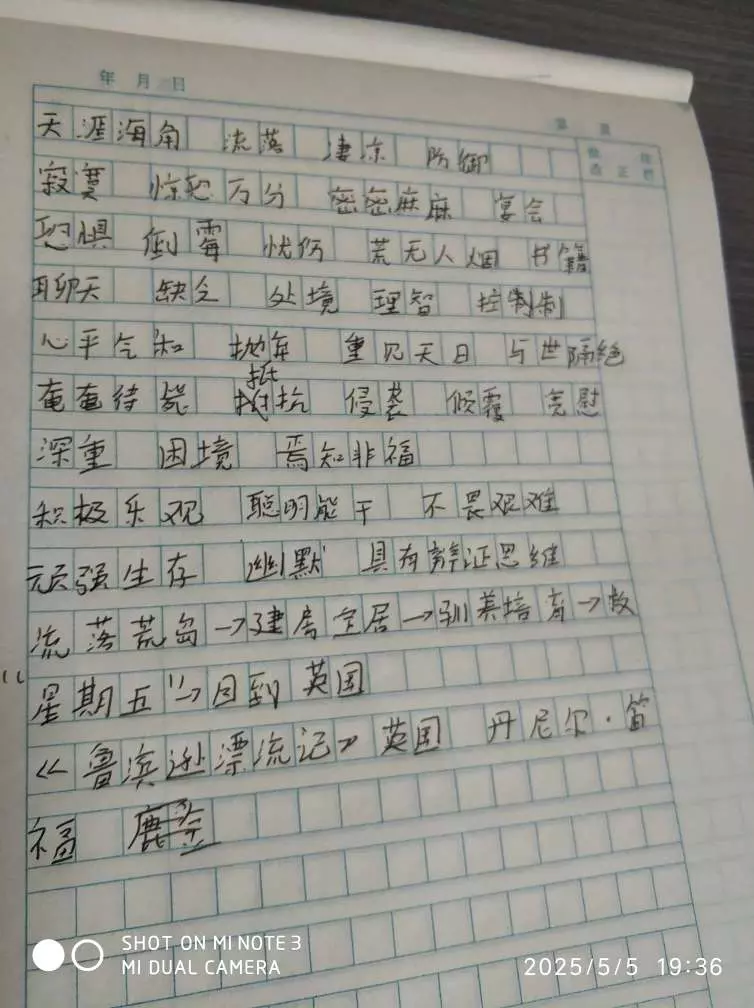 年 月 日
第 页
天涯海角 流落 凄凉 防御
寂寞 惊恐万分 密密麻麻 宴会
恐惧 倒霉 忧伤 荒无人烟 书籍
聊天 缺乏 处境 理智 控制制
心平气和 抛弃 重见天日 与世隔绝
奄奄待毙 抵抗 侵袭 倾覆 宽慰
抵
深重 困境 焉知非福
积极乐观 聪明能干 不畏艰难
顽强生存 幽默 具有辩证思维
流落荒岛→建房定居→驯养培育→救
“星期五”→回到英国
《鲁滨逊漂流记》 英国 丹尼尔·笛
福
SHOT ON MI NOTE 3
MI DUAL CAMERA
2025/5/5 19:36